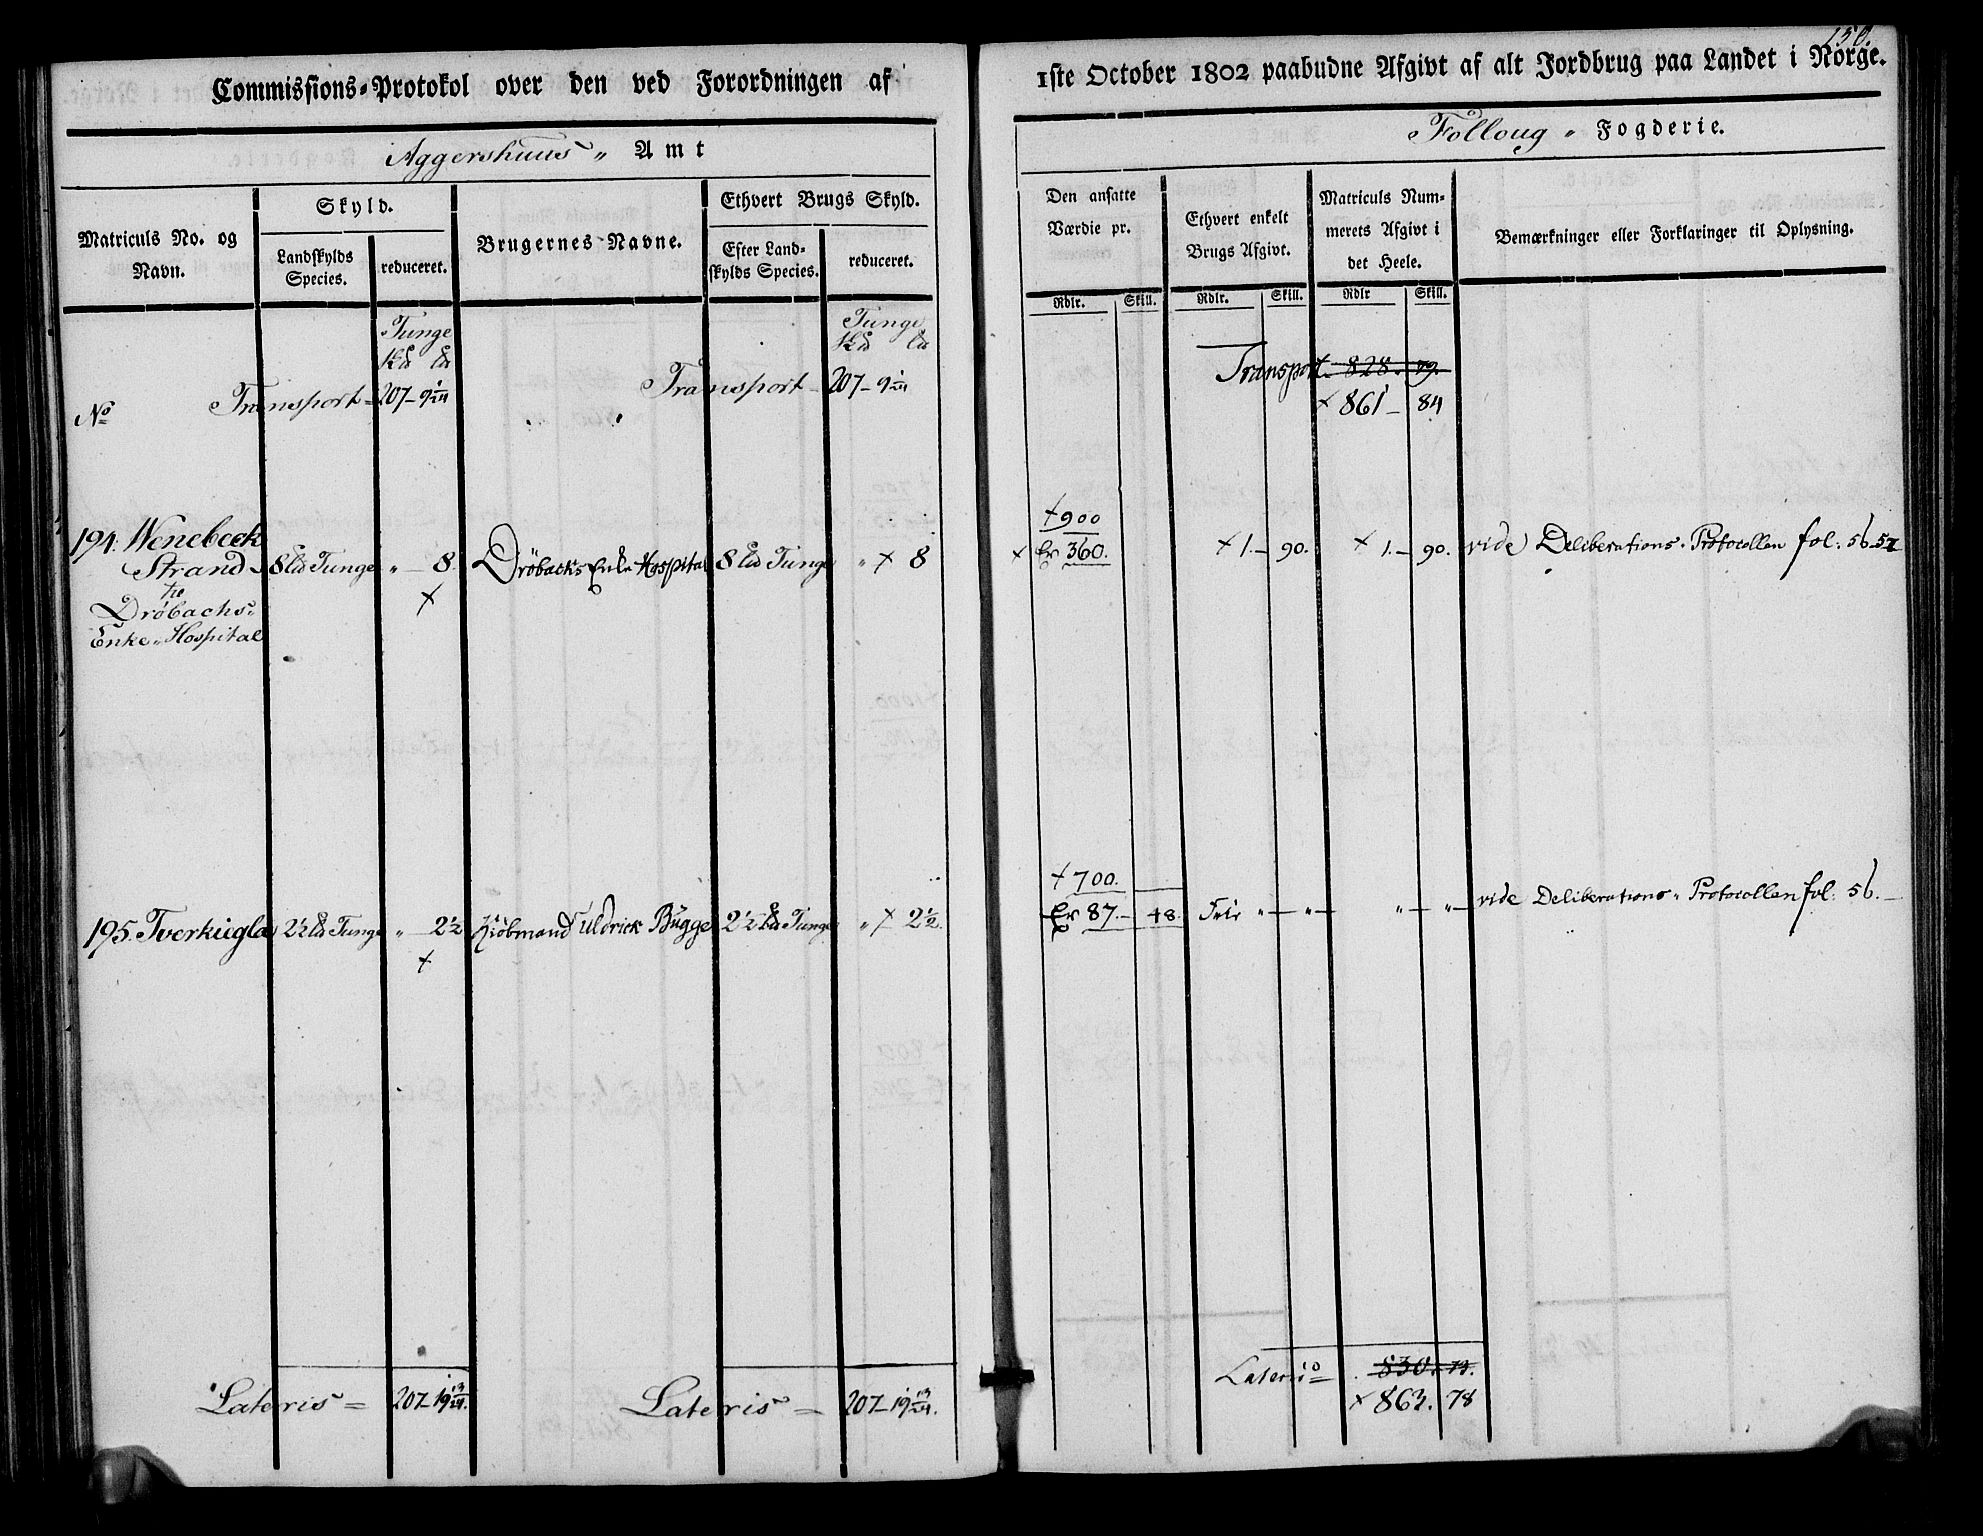 150.
Commissions-Protokol over den ved Forordningen af
1ste October 1802 paabudne Afgivt af alt Jordbrug paa Landet i Norge.
Aggershuus „ Amt
Folloug „ Fogderie.
Matriculs No. og Navn.
Skyld.
Landskylds Species.
reduceret.
Brugernes Navne.
Ethvert Brugs Skyld.
Efter Landskylds Species.
reduceret.
Den ansatte Værdie pr.
Rdlr. Skill.
Ethvert enkelt Brugs Afgivt.
Rdlr. Skill.
Matriculs Nummerets Afgivt i det Heele.
Rdlr Skill.
Bemærkninger eller Forklaringer til Oplysning.
Tunge
Tunge
No
Transport - 207 - 9 1/24
Transport - 207 - 9 1/24
Transport 828. 79.
× 861 - 84
194. Wenebeck Strand
Drøbachs Enke-Hospital
8 Tunge „ - 8.
Drøbacks Enke Hospital 8 Tunge „ × 8
+ 900
× Er 360.
× 1 - 90. × 1 - 90. vide Deliberations-Protocollen fol: 56-57
195. Tverkugla 2½ Tunge „ - 2½
Kiøbmand Uldrick Bugge 2½ Tunge „ × 2½.
+ 700.
Er 87. - 48. Frie „ - „ - „ - „ - vide Deliberations-Protocollen fol: 56.
Lateris = 207 - 19 13/24.
Lateris = 207 - 19 13/24.
Lateris 830. 73.
× 863. 78